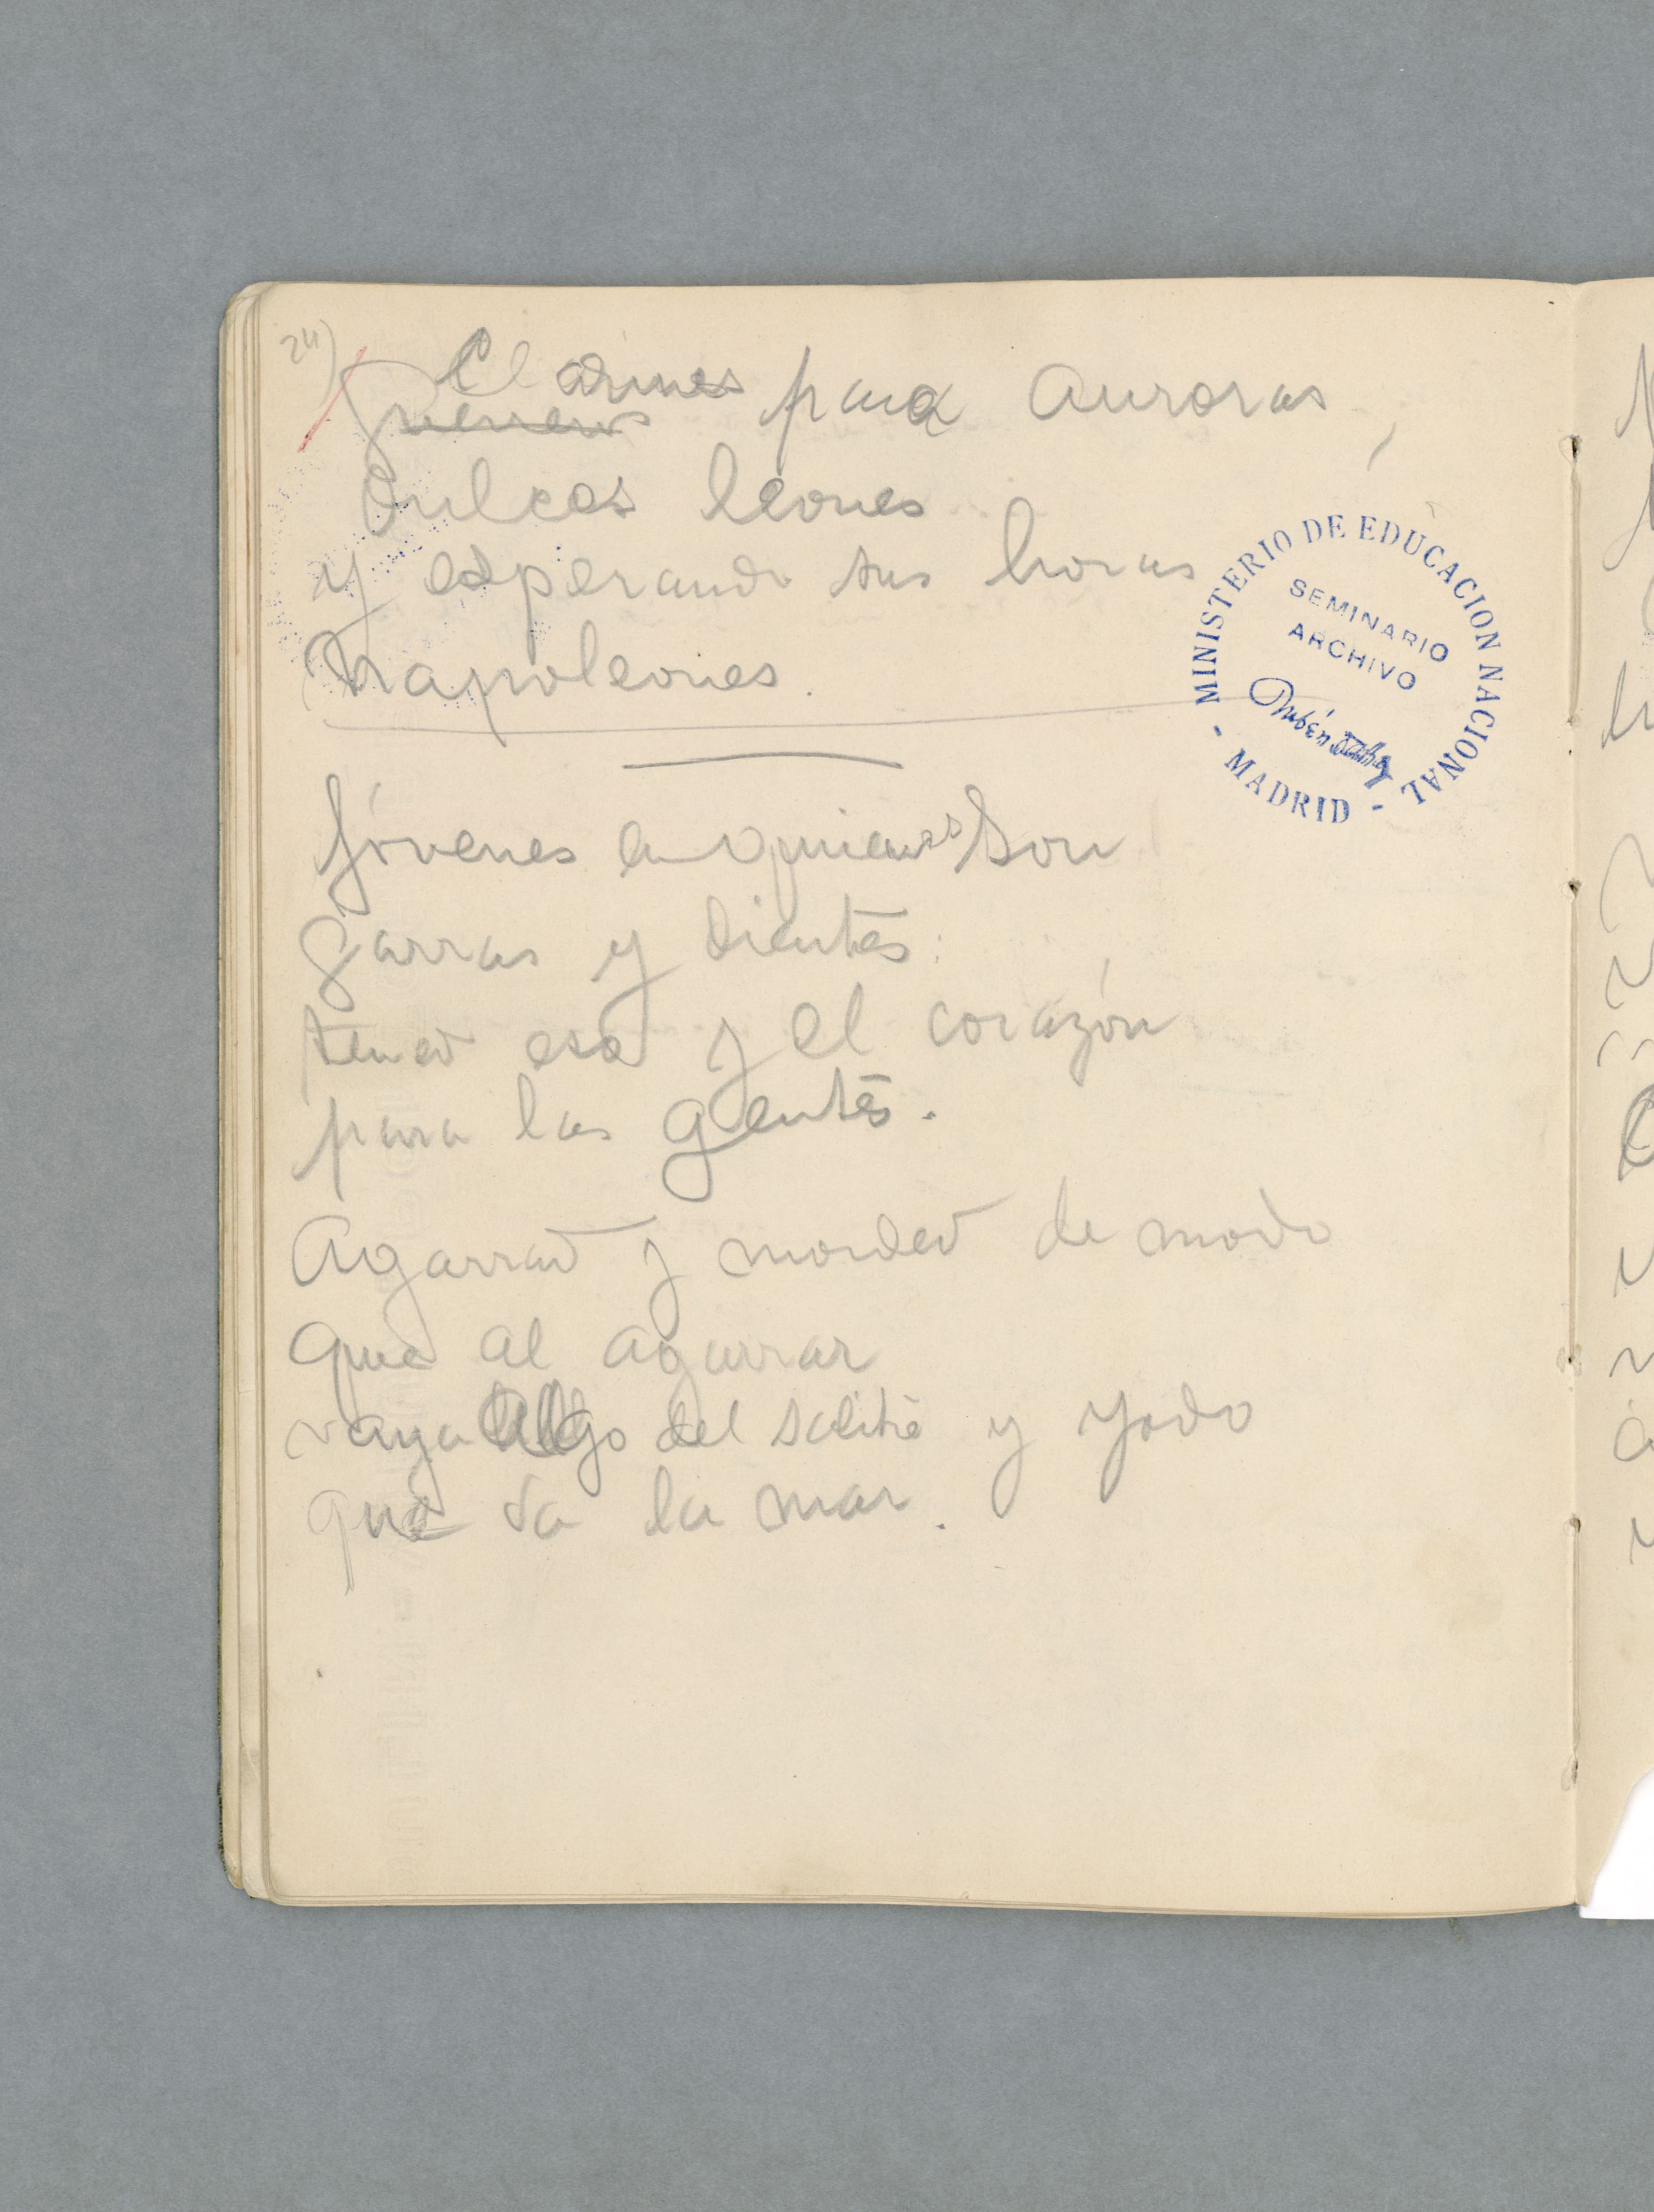 24)
Clarines para auroras,
Guerreros
dulces leones
y esperando sus horas
Napoleones.
Jóvenes en quienes son
garras y dientes:
tened eso y el corazón
para las gentes.
Agarrad y morded de modo
que al agarrar
vaya algo del salitre y yodo
que da la mar.
MINISTERIO DE EDUCACION NACIONAL
- MADRID -
SEMINARIO
ARCHIVO
Rubén Darío